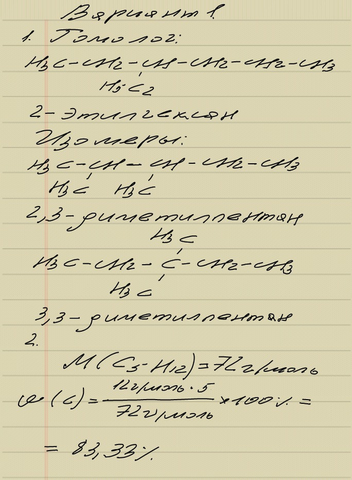 Вариант 1.
1. Гомолог:
H3C-CH2-CH-CH2-CH2-CH3
H5C2
2-этилгексан
Изомеры:
H3C-CH-CH-CH2-CH3
H3C H3C
2,3-диметилпентан
H3C
H3C-CH2-C-CH2-CH3
H3C
3,3-диметилпентан
2.
M(C5H12)=72г/моль
ω(C)=12г/моль·5/72г/моль×100%=
=83,33%